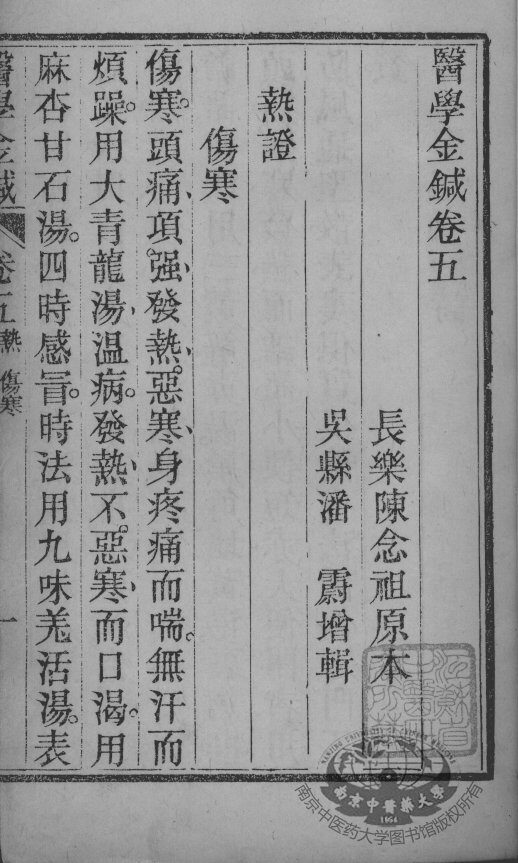 醫學金鍼卷五
長樂陳念祖原本
吳縣潘 霨增輯
熱證
傷寒
傷寒。頭痛、項强、發熱。惡寒、身疼痛而喘。無汗而
煩躁。用大青龍湯、溫病。發熱、不惡寒、而口渴。用
麻杏甘石湯。四時感冒。時法用九味羌活湯。表
醫學金鍼 卷五 熱 傷寒 一
南京中醫藥大學
1954
南京中医药大学图书馆版权所有